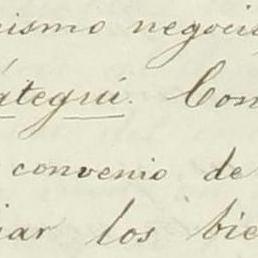 mismo negocio
átegui. Con
convenio de
iar los bie